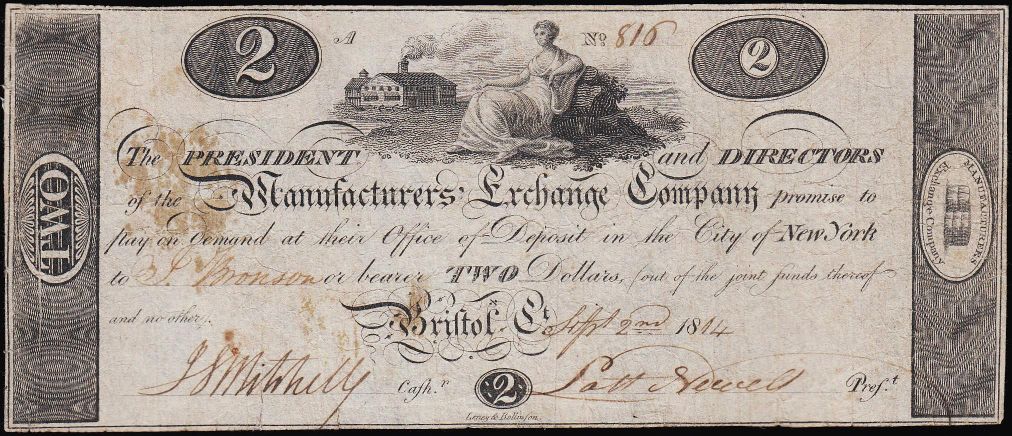 2 A Nº 816 2
The PRESIDENT and DIRECTORS
of the Manufacturers Exchange Company promise to
pay on Demand at their Office of Deposit in the City of New York
to I. Bronson or bearer TWO Dollars, (out of the joint funds thereof
and no other).
Bristol Ct. Sept 2nd 1814
Cash.r 2 Pres.t
Leney & Rollinson.
TWO
MANUFACTURERS
Exchange Company